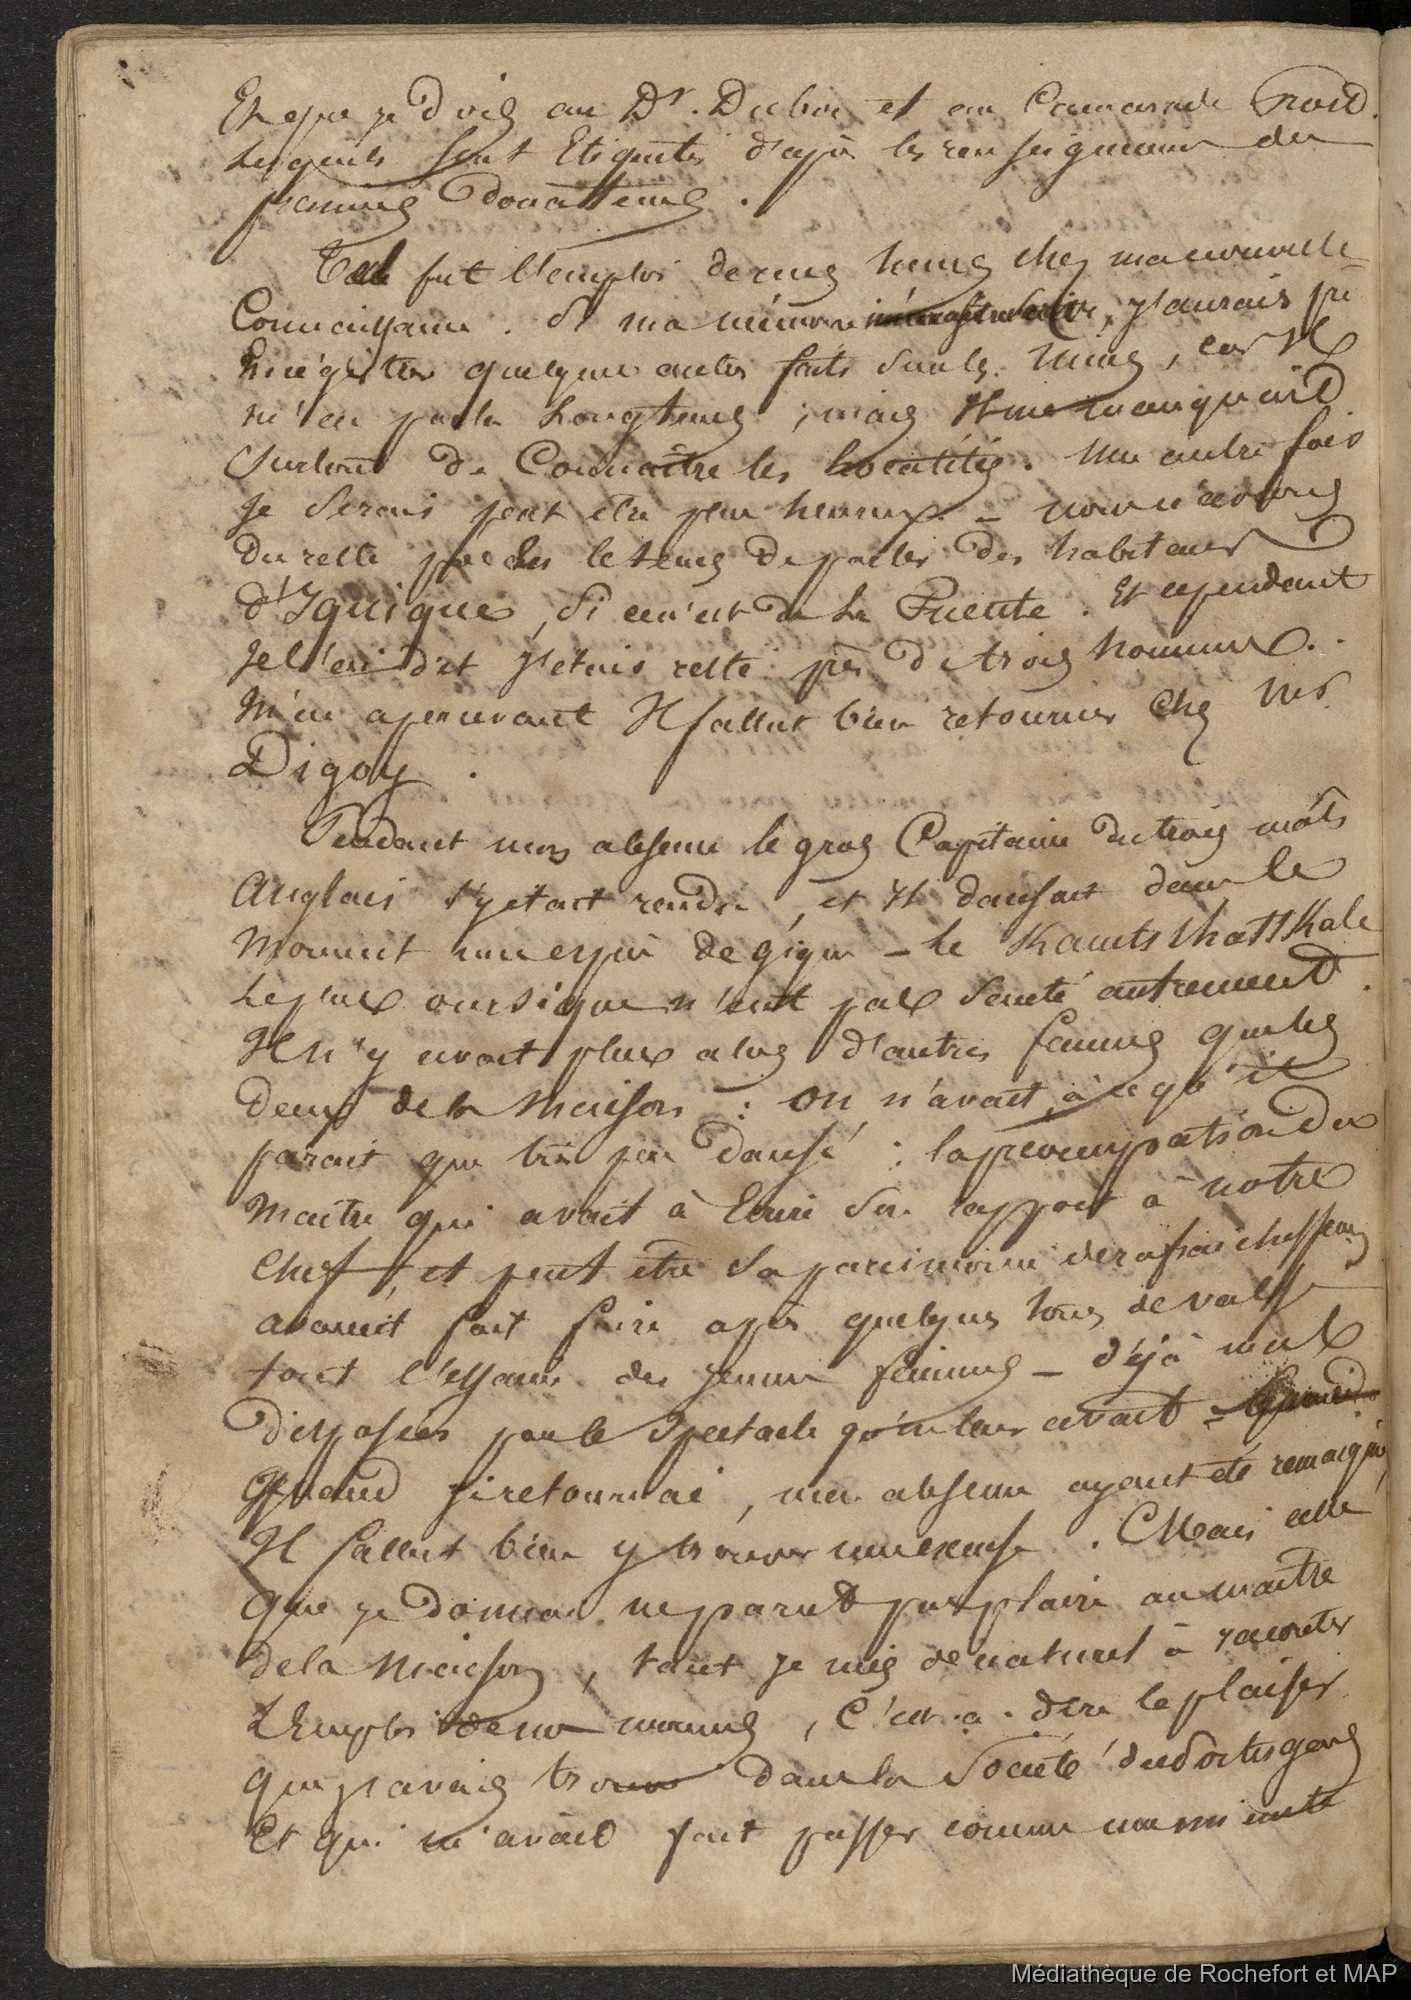 Et que je dois au Dr. Dubois et au Camarade
Lesquels sont Etiquetés d'après les renseignemens des
premiers donateurs.
Tel fut l'emploi de mes heures chez ma nouvelle
Connaissance. Si ma mémoire j'aurais pu
Enrégistrer quelques autres faits sur les mines, car Il
m'en parla Longtems ; mais Il me manquait
Surtout de Connaître les localités. Une autre fois
Je Serais peut être plus heureux. – nous n'avons
du reste pas eu le tems de parler des habitans
d'Iquique, Si ce n'est de La Fuente. Et cependant
Je l'ai dit j'étais resté près de trois heures.
M'en apercevant Il fallut bien retourner Chez Mr
Digoy.
Pendant mon absence le gros Capitaine du trois mâts
Anglais s'y était rendu, et Il dansait dans le
Moment une espèce de gigue – Le Kamtskhattkale
Le plus oursique n'eut pas Sauté autrement.
Il n'y avait plus alors d'autres femmes que les
deux de la Maison : On n'avait, à ce qu'il
parait que très peu dansé : la préoccupation du
Maître qui avait à Ecrire Son rapport à notre
Chef, et peut être Sa parcimonie de rafraichissemens
avaient fait fuire après quelques tours de valse
tout l'essaim des jeunes femmes – déjà mal
disposées par le Spectacle qu'on leur avait –
Quand je retournai, mon absence ayant été remarquée,
Il fallut bien y trouver une excuse. Mais celle
Que je donnai ne parut pas plaire au maître
de la Maison, tant je mis de naturel à raconter
L'Emploi de mes momens, C'est-à-dire le plaisir
que j'avais trouvé dans la Société des
Et qui m'avait fait passer comme une minute
Médiathèque de Rochefort et MAP